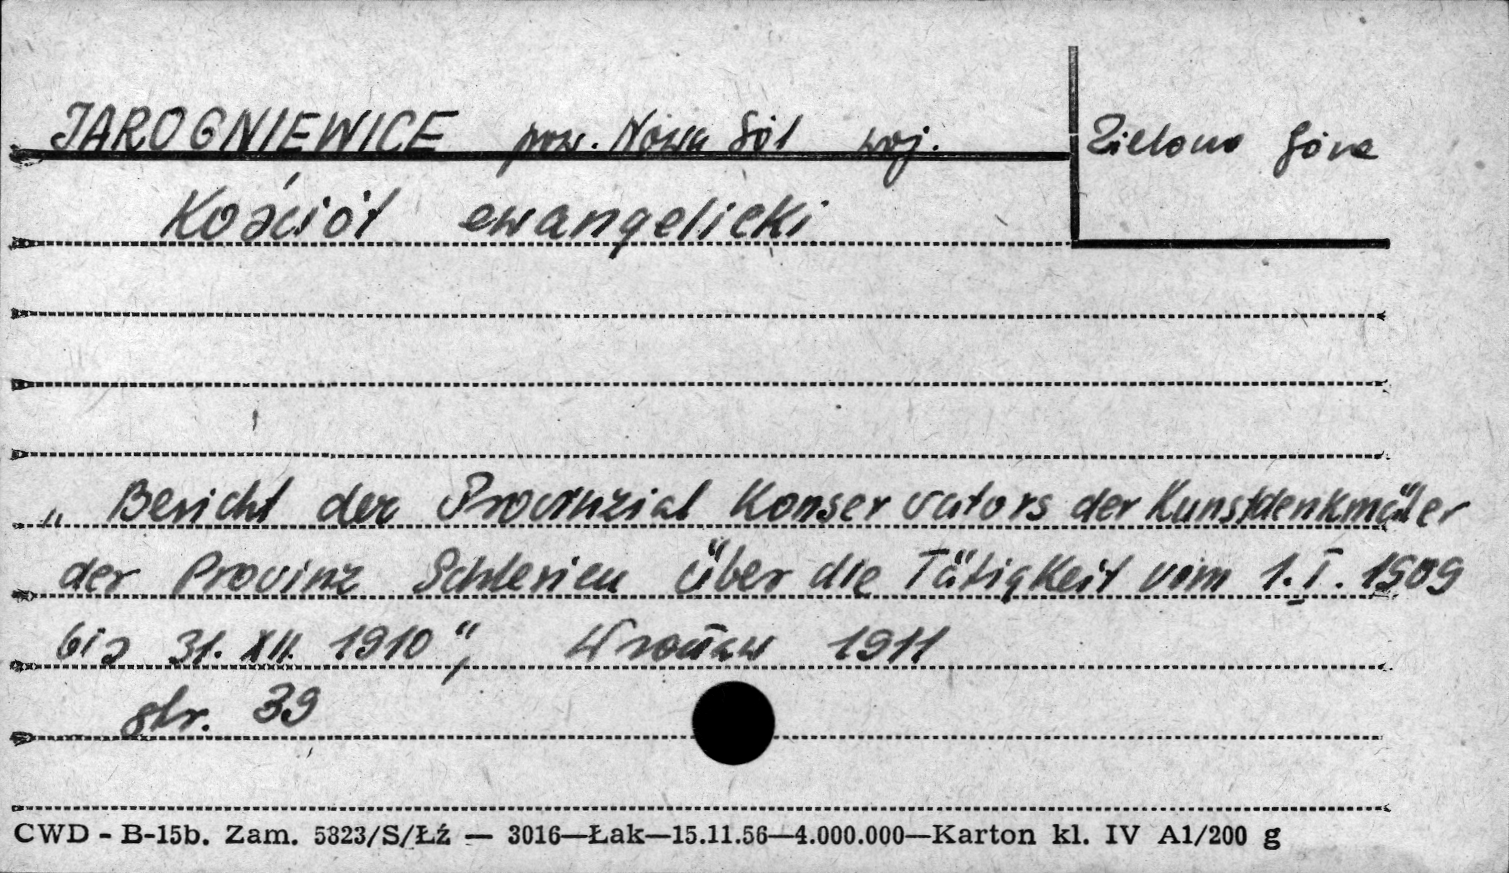 JAROGNIEWICE pow. Nowa Sól woj. Zielona Góra
Kościół ewangelicki
„Bericht der Provinzial Konservators der Kunstdenkmäler
der Provinz Schlesien über die Tätigkeit vom 1.I.1909
bis 31.XII.1910", Wrocław 1911
str. 39
CWD - B-15b. Zam. 5823/S/Łź — 3016—Łak—15.11.56—4.000.000—Karton kl. IV A1/200 g